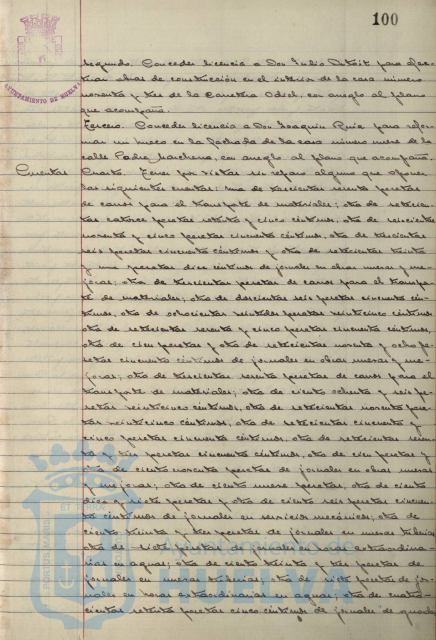 100
AYUNTAMIENTO DE HUELVA
Segundo. Conceder licencia a Don Julio para efec-
tuar obras de construcción en el interior de la casa número
noventa y tres de la Carretera Odiel, con arreglo al plano
que acompaña.
Tercero. Conceder licencia a Don Joaquin Ruiz para refor-
mar un hueco en la fachada de la casa número nueve de la
calle Padre Marchena, con arreglo al plano que acompaña.
Cuentas Cuarto. Tener por vistas sin reparo alguno que oponer
las siguientes cuentas: una de trescientas pesetas
de carros para el transporte de materiales; otra de setecien-
tas catorce pesetas setenta y cinco céntimos, otra de seiscientas
noventa y cinco pesetas cincuenta céntimos, otra de trescientas
seis pesetas cincuenta céntimos y otra de setecientas treinta
y una pesetas diez céntimos de jornales en obras nuevas y me-
joras; otra de trescientas pesetas de carros para el transpor-
te de materiales; otra de doscientas seis pesetas cincuenta cén-
timos, otra de ochocientas pesetas veinticinco céntimos,
otra de setecientas y cinco pesetas cincuenta céntimos,
otra de cien pesetas y otra de setecientas noventa y ocho pe-
setas cincuenta céntimos de jornales en obras nuevas y me-
joras; otra de trescientas pesetas de carros para el
transporte de materiales; otra de ciento ochenta y seis pe-
setas veinticinco céntimos, otra de setecientas noventa pese-
tas veinticinco céntimos, otra de setecientas cincuenta y
cinco pesetas cincuenta céntimos, otra de setecientas
y tres pesetas cincuenta céntimos, otra de cien pesetas y
otra de ciento noventa pesetas de jornales en obras nuevas
y mejoras; otra de ciento nueve pesetas, otra de ciento
diez y siete pesetas y otra de ciento seis pesetas cincuen-
ta céntimos de jornales en servicios mecánicos; otra de
ciento treinta y tres pesetas de jornales en nuevas tuberías
otra de siete pesetas de jornales en horas extraordina-
rias en aguas; otra de ciento treinta y tres pesetas de
jornales en nuevas tuberías; otra de siete pesetas de jor-
nales en horas extraordinarias en aguas; otra de cuatro-
cientas setenta pesetas cinco céntimos de jornales de guarda